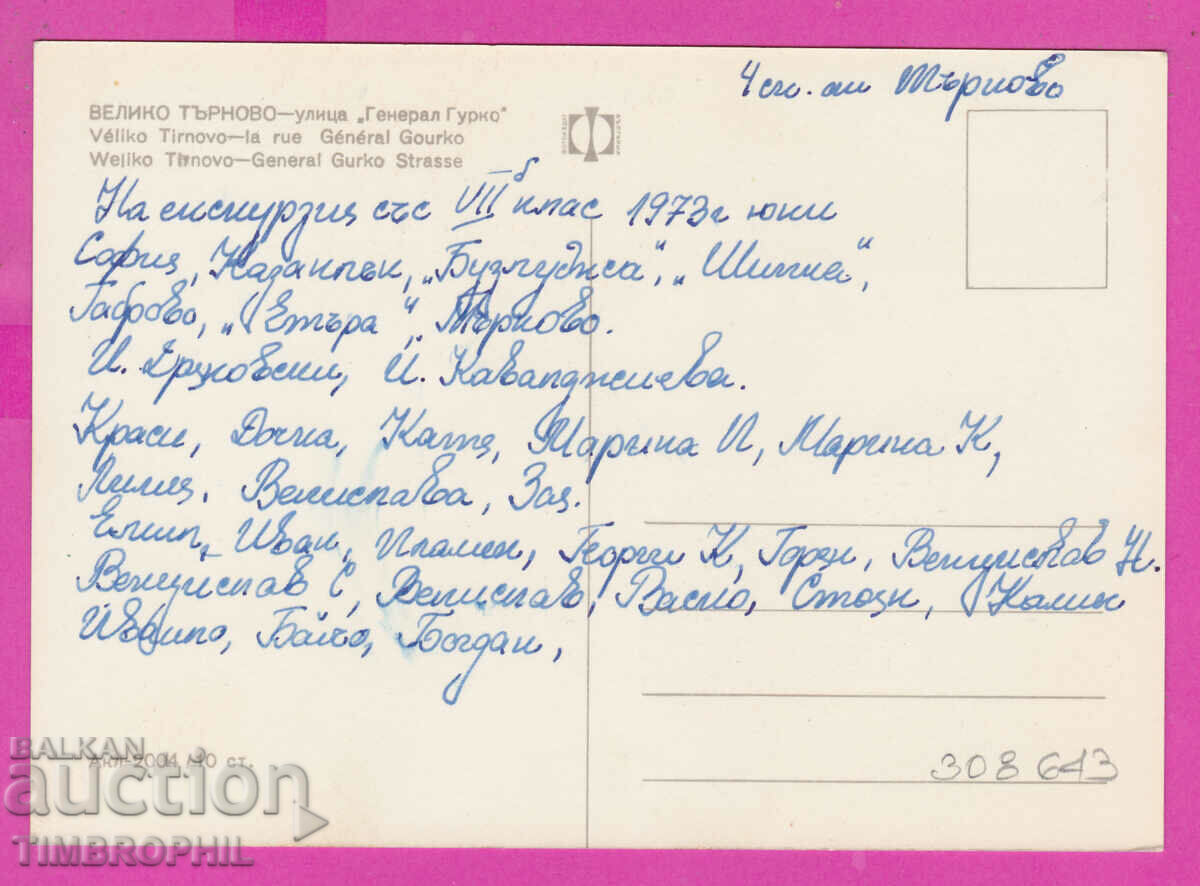 4 сн. от Търново
ВЕЛИКО ТЪРНОВО—улица „Генерал Гурко"
Véliko Tirnovo—la rue Général Gourko
Weliko Tirnovo—General Gurko Strasse
На екскурзия със VIIб клас 1973г юни
София, Казанлък, „Бузлуджа", „Шипка",
Габрово, „Етъра", Търново.
И. Дряновски, И. Кавалджиева.
Краси, Дочка, Катя, Марина И, Марина К,
Лилия, Велислава, Зоя.
Емил, Иван, Пламен, Георги К, Горан, Венцислав Н.
Венцислав С, Велислав, Васко, Стоян, Калин
Ивайло, Байчо, Богдан,
Акл-2004 10 ст.
308 643
BALKAN
auction
TIMBROPHIL